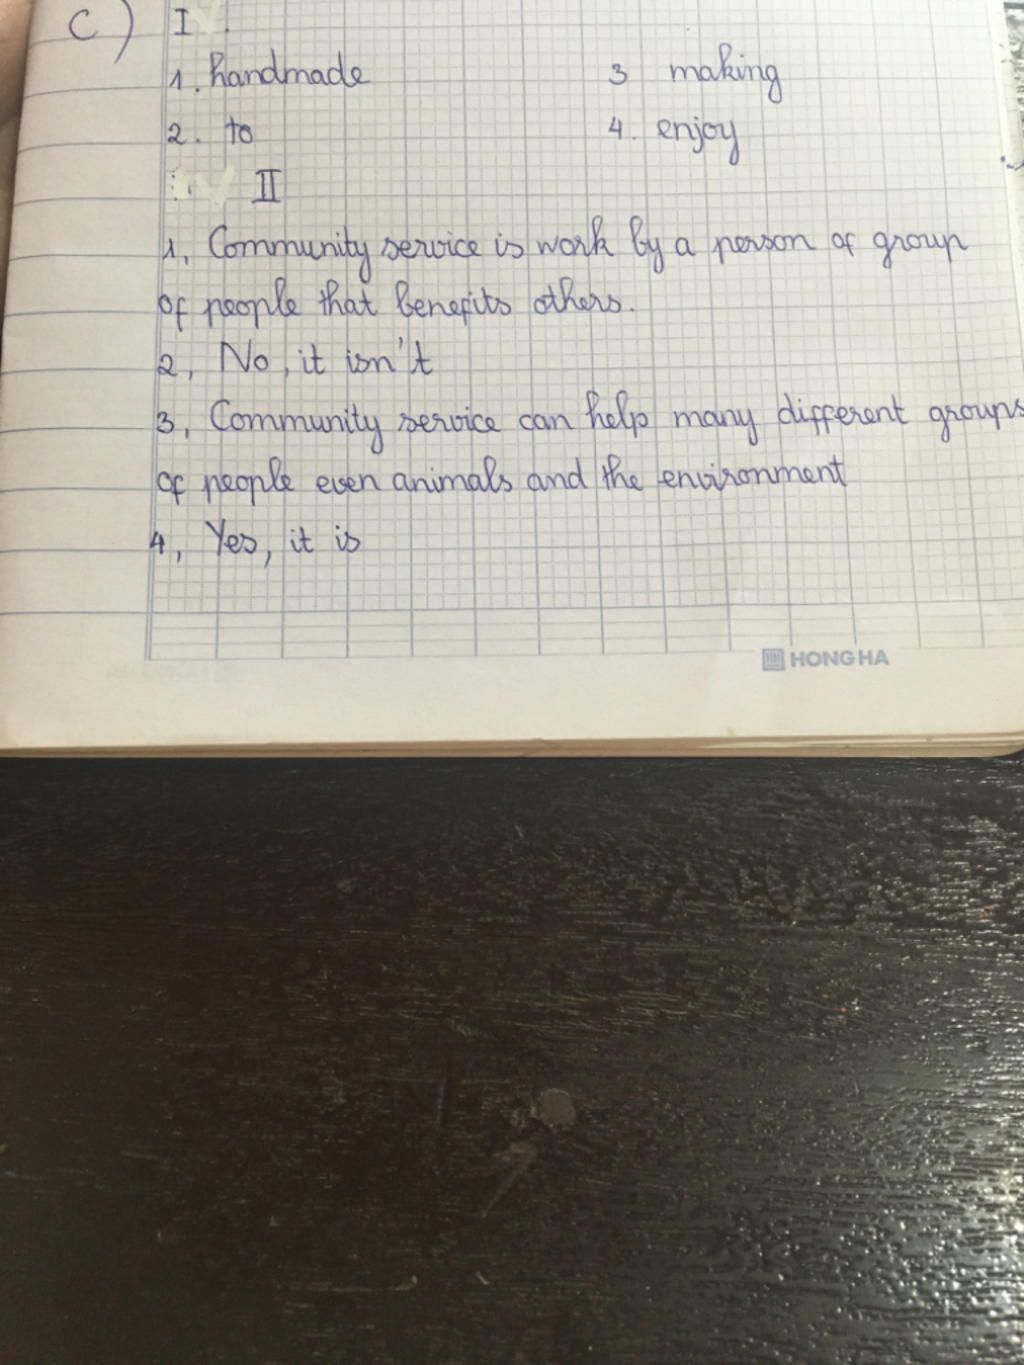 C) I.
1. handmade 3 making
2. to 4. enjoy
II
1, Community service is work by a person of group
of people that benefits others.
2, No, it isn't
3, Community service can help many different groups
of people even animals and the environment
4, Yes, it is
HONG HA